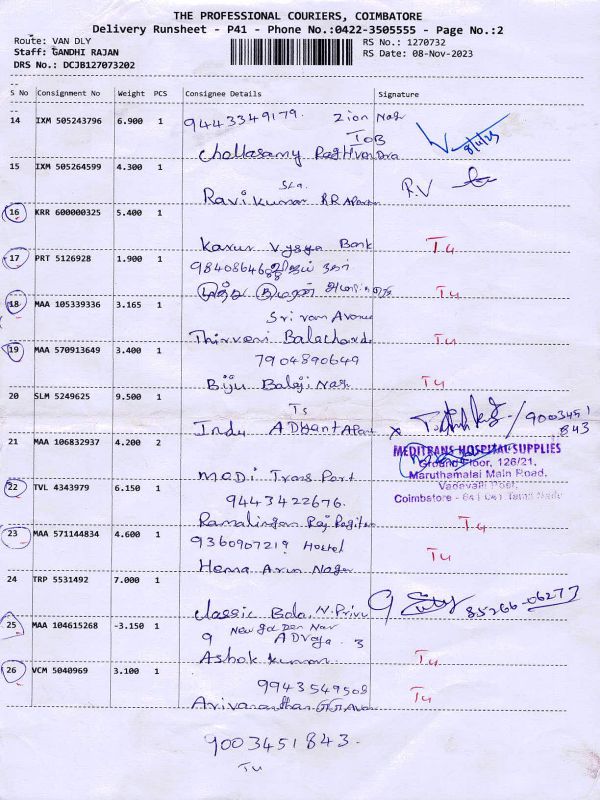 THE PROFESSIONAL COURIERS, COIMBATORE
Delivery Runsheet - P41 - Phone No.:0422-3505555 - Page No.:2
Route: VAN DLY
RS No.: 1270732
Staff: GANDHI RAJAN
RS Date: 08-Nov-2023
DRS No.: DCJB127073202
S No Consignment No Weight PCS Consignee Details Signature
14 IXM 505243796 6.900 1 9443349179. Zion Nagr
IOB
8/11/23
Chollasamy Raghvendra
15 IXM 505264599 4.300 1
R.V
Ravikumar RR Apartmen
16 KRR 600000325 5.400 1
Karur Vysya Bank Tu
17 PRT 5126928 1.900 1 98408646
Tu
18 MAA 105339336 3.165 1
Sri ram Avenue
Thirveni Balachand Tu
19 MAA 570913649 3.400 1 7904890649
Biju Balaji Nagr Tu
20 SLM 5249625 9.500 1
TS
Indu ADWant Apart x 9003451
843
21 MAA 106832937 4.200 2
MEDITRANS HOSPITAL SUPPLIES
Ground Floor, 126/21,
Maruthamalai Main Road,
Vadavalli Post,
Coimbatore - 641 041 Tamil Nadu
MEDI Trans Port
22 TVL 4343979 6.150 1
9443422676.
Ramalingam Raj Tu
23 MAA 571144834 4.600 1 9360907219 Hostel
Tu
Hema Arun Nagar
24 TRP 5531492 7.000 1
85266-06277
Classic Bala, N. Privu
25 MAA 104615268 -3.150 1 New Garden Nar
9 ADvaya. 3
Ashok kumar Tu
26 VCM 5040969 3.100 1
9943549508 Tu
9003451843.
Tu